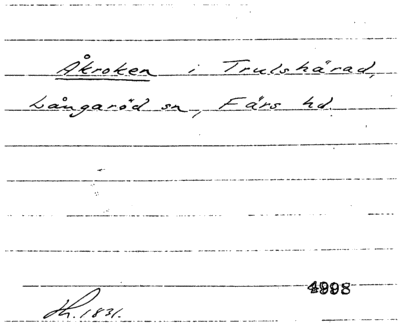 Åkroken i Trulshärad,
Långaröd sn, Färs hd
4998
Jh. 1831.